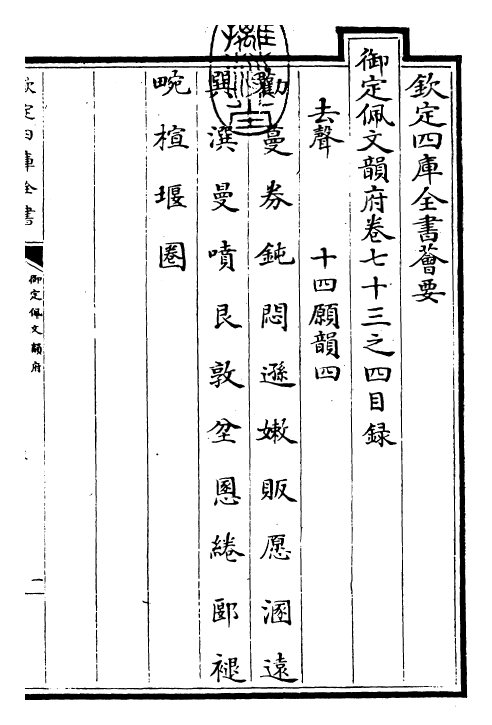 欽定四庫全書薈要
御定佩文韻府卷七十三之四目録
去聲　十四願韻四
勸蔓券鈍悶遜嫩販愿溷遠
巽潠曼噴艮敦坌慁綣郾褪
畹楦堰圈
欽定四庫全書
御定佩文韻府
二